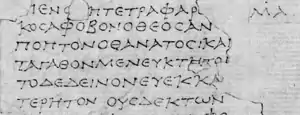 ΜΕΝϹ ΗΤΕΤΡΑΦΑΡ ΜΑ
ΚΟϹΑΦΟΒΟΝΟΘΕΟϹΑΝ
ΠΟΠΤΟΝΟΘΑΝΑΤΟϹΚΑΙ
ΤΑΓΑΘΟΝΜΕΝΕΥΚΤΗΤΟ
ΤΟΔΕΔΕΙΝΟΝΕΥΕΚΚΑ
ΤΕΡΗΤΟΝ ΟΥϹΔΕΚΤΩΝ